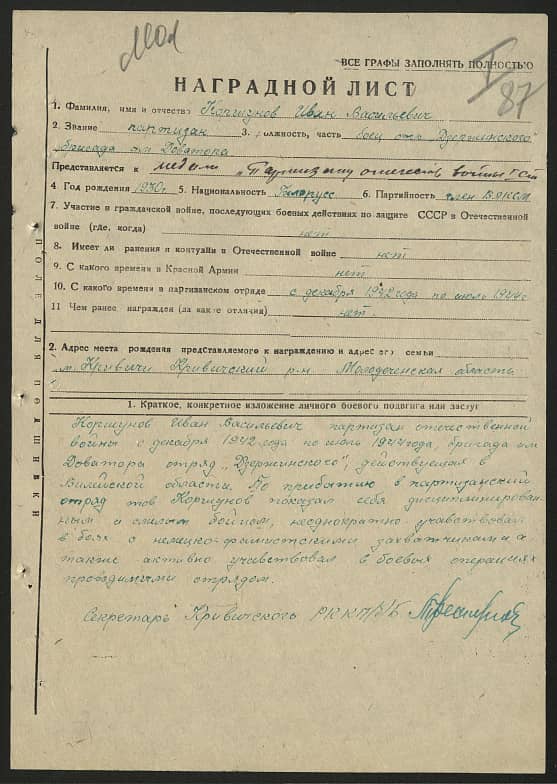 ВСЕ ГРАФЫ ЗАПОЛНЯТЬ ПОЛНОСТЬЮ
87
НАГРАДНОЙ ЛИСТ
1. Фамилия, имя и отчество Коршунов Иван Васильевич
2. Звание партизан 3. должность, часть боец отр. Дзержинского
бригада им Доватора
Представляется к медали „Партизану отечеств войны I ст
4 Год рождения 5. Национальность Белорусс 6. Партийность член ВЛКСМ
7. Участие в гражданской войне, последующих боевых действиях по защите СССР в Отечественной
войне (где, когда) нет
8. Имеет ли ранения и контузии в Отечественной войне нет
9. С какого времени в Красной Армии нет
10. С какого времени в партизанском отряде с декабря 1942 года по июль 1944 г.
11 Чем ранее награжден (за какие отличия) нет.
2. Адрес места рождения представляемого к награждению и адрес его семьи
м. Кривичи Кривичский р-н Молодеченская область
1. Краткое, конкретное изложение личного боевого подвига или заслуг
Коршунов Иван Васильевич партизан отечественной
войны с декабря 1942 года по июль 1944 года, бригада им
Доватора отряд „Дзержинского", действующая в
Вилейской области. По прибытию в партизанский
отряд тов Коршунов показал себя дисциплинирован-
ным и смелым бойцом, неоднократно учавствовал
в боях с немецко-фашистскими захватчиками а
также активно учавствовал в боевых операциях
проводимыми отрядом.
Секретарь Кривичского РК КП/б/Б
ПОЛЕ ДЛЯ ПОДШИВКИ